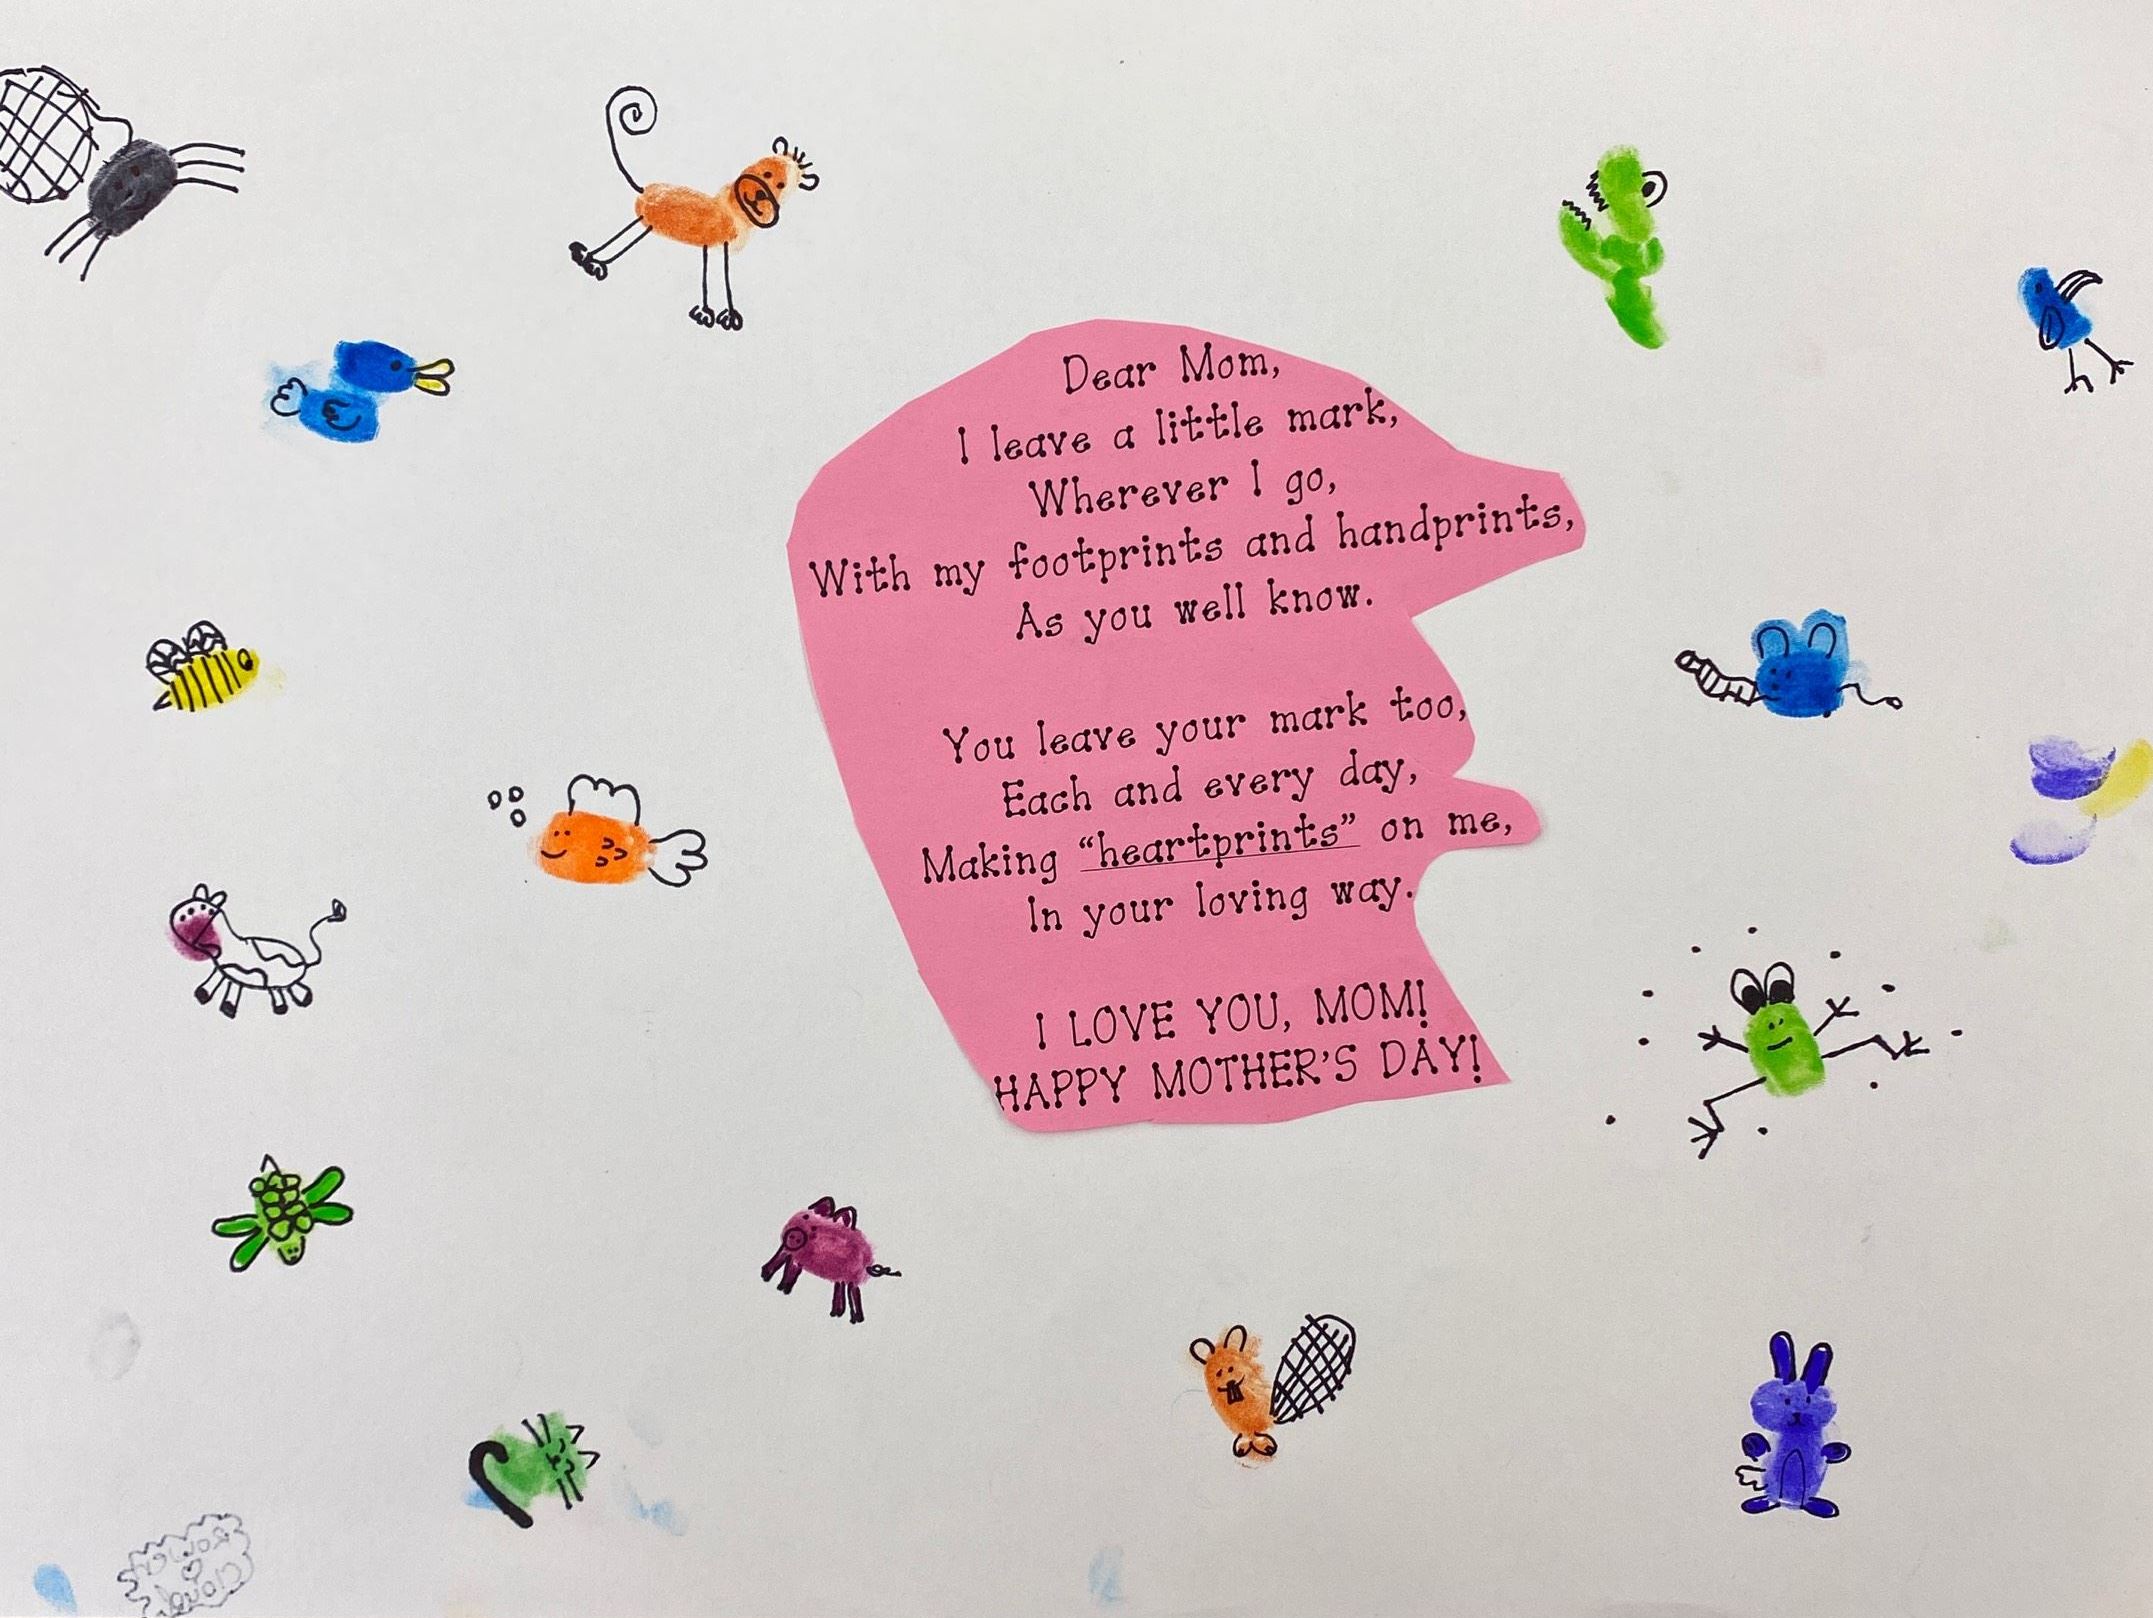 Dear Mom,
I leave a little mark,
Wherever I go,
With my footprints and handprints,
As you well know.
You leave your mark too,
Each and every day,
Making “heartprints” on me,
In your loving way.
I LOVE YOU, MOM!
HAPPY MOTHER'S DAY!